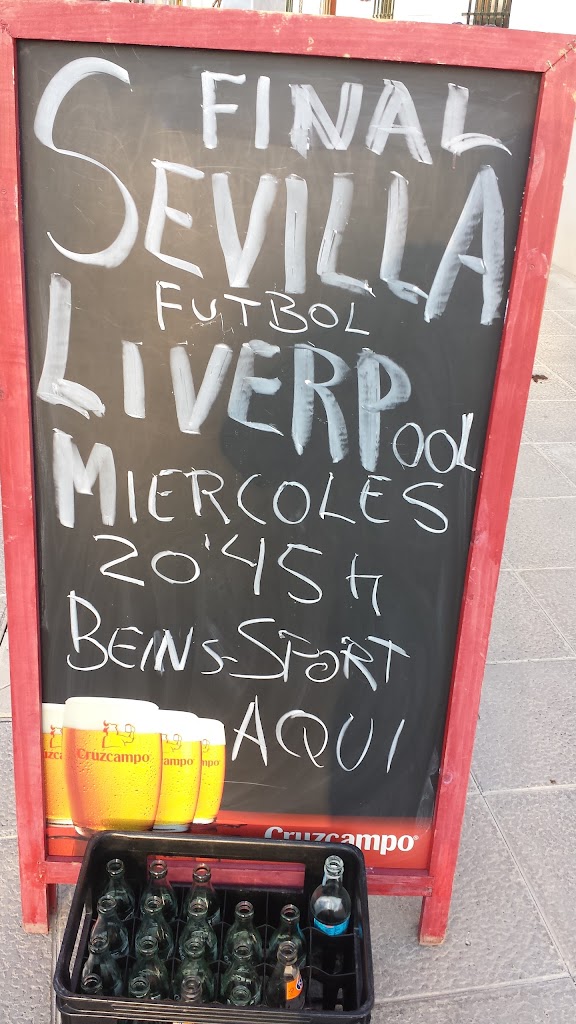 FINAL
SEVILLA
FUTBOL
LIVERPOOL
MIERCOLES
20'45 H
BEINS-SPORT
AQUI
Cruzcampo
Cruzcampo